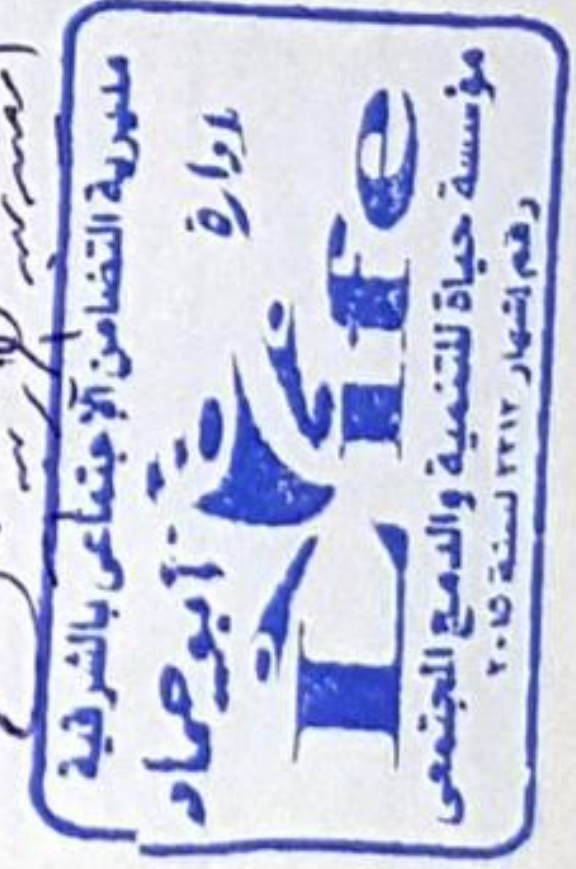 مديرية التضامن الإجتماعى بالشرقية
إدارة أبو حماد
Life
مؤسسة حياة للتنمية والدمج المجتمعى
رقم إشهار ٢٢١٢ لسنة ٢٠١٥